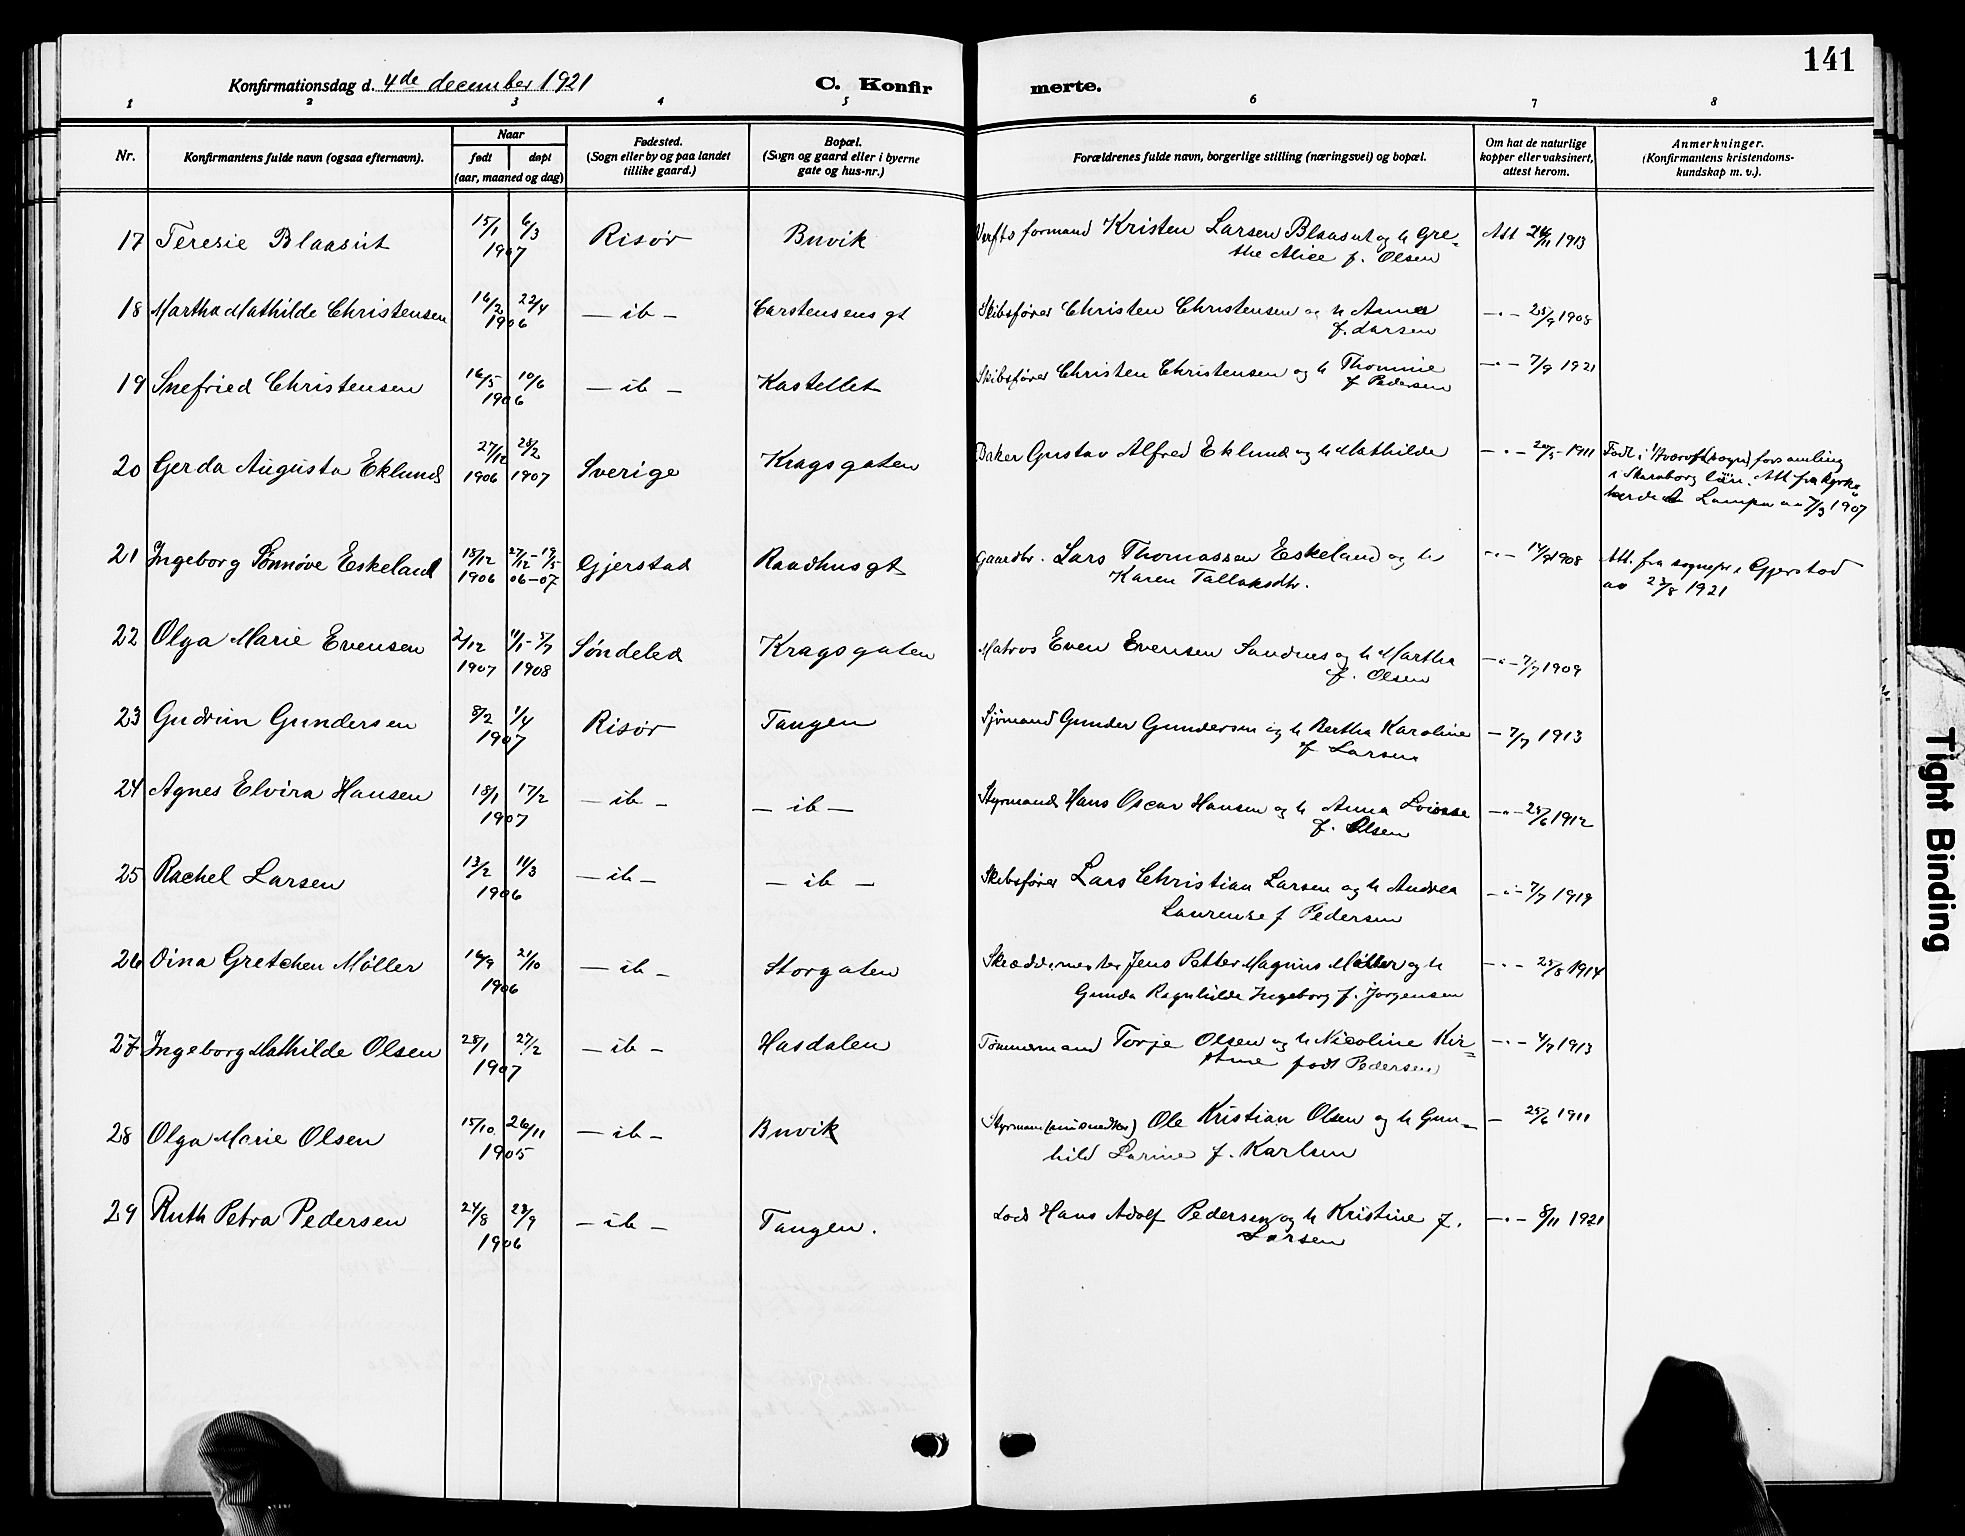 141
Konfirmationsdag d. 4de december 1921 C. Konfir merte.
1 2 3 4 5 6 7 8
Nr. Konfirmantens fulde navn (ogsaa efternavn). Naar født døpt (aar, maaned og dag) Fødested. (Sogn eller by og paa landet tillike gaard.) Bopæl. (Sogn og gaard eller i byerne gate og hus-nr.) Forældrenes fulde navn, borgerlige stilling (næringsvei) og bopæl. Om hat de naturlige kopper eller vaksinert, attest herom. Anmerkninger. (Konfirmantens kristendoms-kundskap m. v.).
17 Teresie Blaasut 15/1 6/3 1907 Risør Buvik Verfts formand Kristen Larsen Blaasut og h Gre=
the Alice f. Olsen Att 24/11 1913
18 Martha Mathilde Christensen 16/2 22/4 1906 — ib — Carstensens gt Skibsfører Christen Christensen og h Anna
f. Larsen —"— 25/9 1908
19 Snefried Christensen 16/5 10/6 1906 — ib — Kastellet Skibsfører Christen Christensen og h Thomine
f Pedersen —"— 7/9 1921
20 Gerda Augusta Eklund 27/12 1906 28/2 1907 Sverige Kragsgaten Baker Gustav Alfred Eklund og h Mathilde —"— 20/5 1911 Født i forsamling
i Skaraborg län. Att fra kyrko
herde Lampa av 7/3 1907
21 Ingeborg Sønnøve Eskeland 18/12 1906 27/12 - 19/5 06-07 Gjerstad Raadhusgt Gaardbr. Lars Thomassen Eskeland og h
Karen Tallaksdtr. —"— 14/9 1908 Att. fra sognepr i Gjerstad
av 23/8 1921
22 Olga Marie Evensen 2/12 1907 11/1 - 5/7 1908 Søndeled Kragsgaten Matros Even Evensen Sandnes og h Martha
f. Olsen —"— 7/7 1909
23 Gudrun Gundersen 8/2 1/4 1907 Risør Tangen Sjømand Gunder Gundersen og h Bertha Karoline
f Larsen — 7/7 1913
24 Agnes Elvira Hansen 18/1 17/2 1907 — ib — — ib — Styrmand Hans Oscar Hansen og h Anna Lovisse
f. Olsen —"— 25/6 1912
25 Rachel Larsen 13/2 11/3 1906 — ib — — ib — Skibsfører Lars Christian Larsen og h Andrea
Laurense f Pedersen —"— 7/7 1919
26 Dina Gretchen Møller 16/9 21/10 1906 — ib — Storgaten Skræddermester Jens Petter Magnus Møller og h
Gunda Ragnhilde Ingeborg f. Jørgensen —"— 25/8 1914
27 Ingeborg Mathilde Olsen 28/1 27/2 1907 — ib — Hasdalen Tømmermand Torje Olsen og h Nicoline Kir=
stine født Pedersen —"— 4/7 1913
28 Olga Marie Olsen 15/10 26/11 1905 — ib — Buvik Styrmand Ole Kristian Olsen og h Gun=
hild Larine f. Karlsen — 25/6 1911
29 Ruth Petra Pedersen 24/8 23/9 1906 — ib — Tangen. Lods Hans Adolf Pedersen og h Kristine f.
Larsen —"— 8/11 1921
Tight Binding